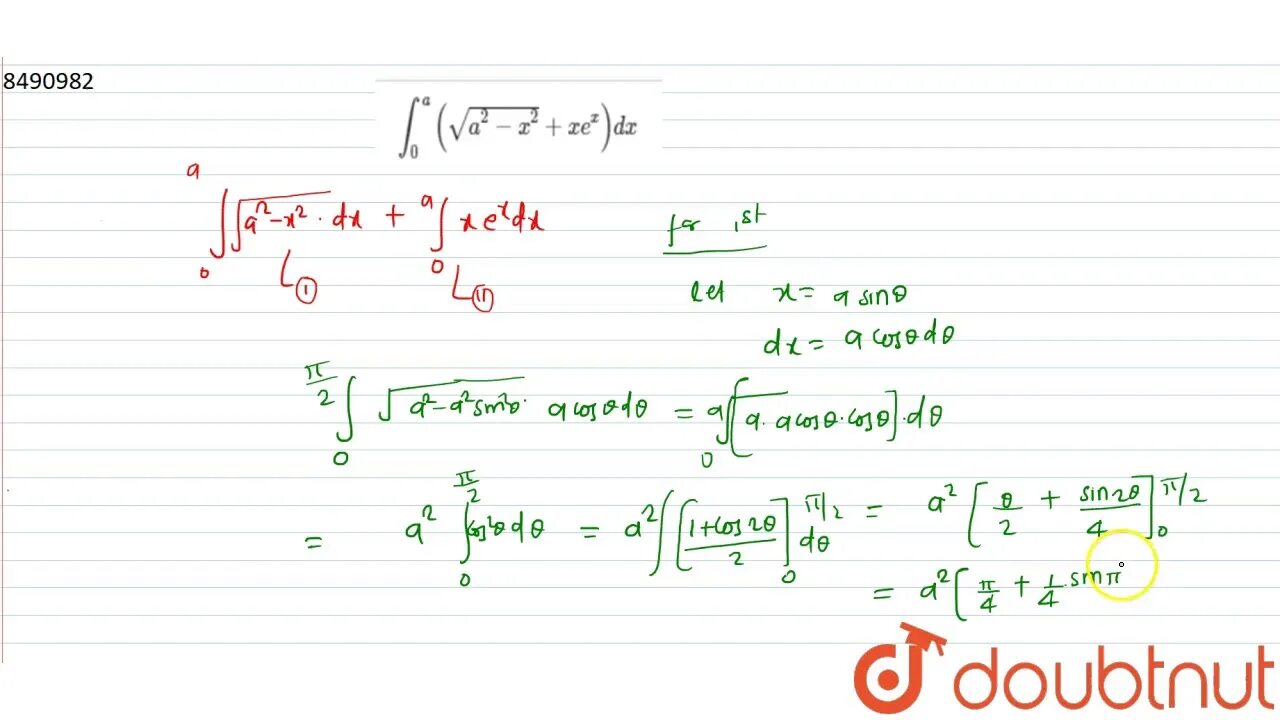 8490982
∫₀ᵃ (√(a² − x²) + xeˣ) dx
∫₀ᵃ √(a²−x²) · dx + ∫₀ᵃ x eˣ dx
I II
for 1st
let x = a sinθ
dx = a cosθ dθ
∫₀^(π/2) √(a²−a² sin²θ) · a cosθ dθ = ∫₀ᵃ [a · a cosθ · cosθ] · dθ
= a² ∫₀^(π/2) cos²θ dθ = a² ∫ [(1+cos2θ)/2]₀^(π/2) dθ = a² [θ/2 + sin2θ/4]₀^(π/2)
= a² [π/4 + 1/4 · sin π
doubtnut